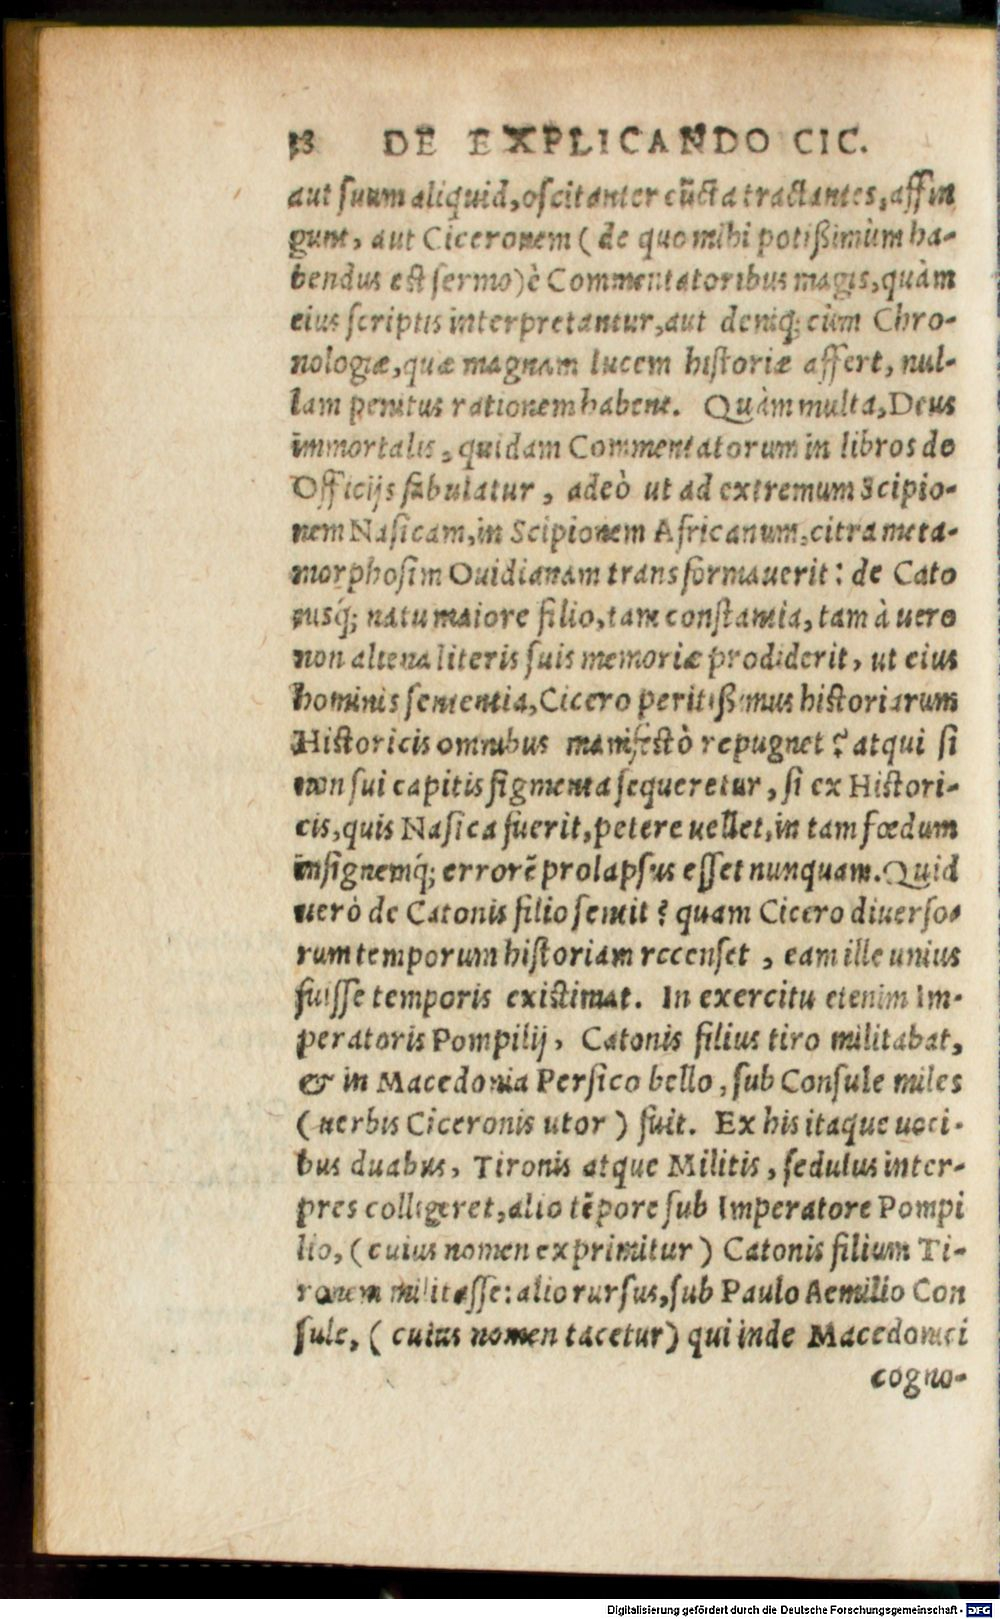 38 DE EXPLICANDO CIC.
aut ſuum aliquid, oſcitanter cũcta tractantes, affin
gunt, aut Ciceronem (de quo mihi potißimùm ha-
bendus est ſermo) è Commentatoribus magis, quàm
eius ſcriptis interpretantur, aut deniq; cùm Chro-
nologiæ, quæ magnam lucem hiſtoriæ affert, nul-
lam penitus rationem habent. Quàm multa, Deus
immortalis, quidam Commentatorum in libros de
Officijs fabulatur, adeò ut ad extremum Scipio-
nem Naſicam, in Scipionem Africanum, citra meta-
morphoſim Ouidianam transformauerit: de Cato
nisq́; natu maiore filio, tam conſtantia, tam à uero
non aliena literis ſuis memoriæ prodiderit, ut eius
hominis ſententia, Cicero peritißimus historiarum
Historicis omnibus manifestò repugnet? atqui ſi
non ſui capitis figmenta ſequeretur, ſi ex Histori-
cis, quis Naſica fuerit, petere uellet, in tam fœdum
inſignemq́; errorẽ prolapſus eſſet nunquam. Quid
uerò de Catonis filio ſentit? quam Cicero diuerſo-
rum temporum hiſtoriam recenſet, eam ille unius
fuiſſe temporis existimat. In exercitu etenim Im-
peratoris Pompilij, Catonis filius tiro militabat,
& in Macedonia Perſico bello, ſub Conſule miles
(uerbis Ciceronis utor) fuit. Ex his itaque uoci-
bus duabus, Tironis atque Militis, ſedulus inter-
pres colligeret, alio tẽpore ſub Imperatore Pompi
lio, (cuius nomen exprimitur) Catonis filium Ti-
ronem militaſſe: alio rurſus, ſub Paulo Aemilio Con
ſule, (cuius nomen tacetur) qui inde Macedonici
cogno-
Digitalisierung gefördert durch die Deutsche Forschungsgemeinschaft - DFG